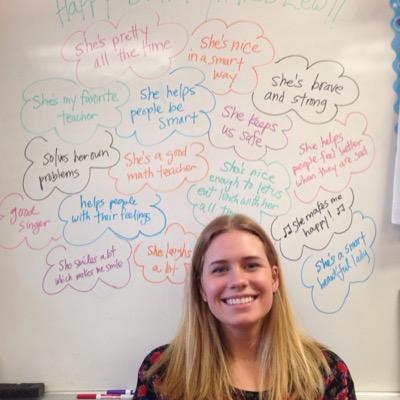 Happy
Lew!!
She's pretty
all the time
She's nice
in a smart
way
She's brave
and strong
She's my favorite
teacher
She helps
people be
smart
She keeps
us safe
She helps
people feel better
when they are sad
Solves her own
problems
She's a good
math teacher
She's nice
enough to let us
eat lunch with her
all
good
singer
helps people
with their feelings
She makes me
happy!
She smiles a lot
which makes me smile
She laughs
a lot
She's a smart
beautiful lady